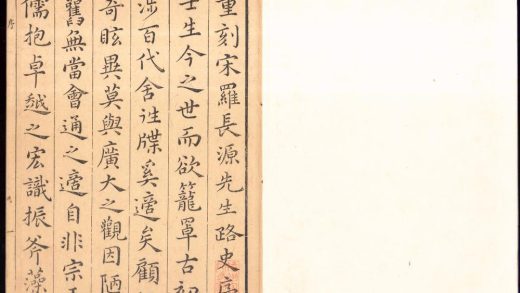 重刻宋羅長源先生路史序
士生今之世而欲籠罩古初
涉百代舍徃牒奚適矣顧
奇眩異莫與廣大之觀因陋
舊無當會通之適自非宗
儒抱卓越之宏識振斧藻
序